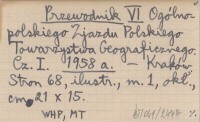 Przewodnik VI Ogólno-
polskiego Zjazdu Polskiego
Towarzystwa Geograficznego.
Cz. I. 1958 a. — Kraków.
Stron 68, ilustr., m. 1, okł.,
cm 21 x 15.
WHP, MT